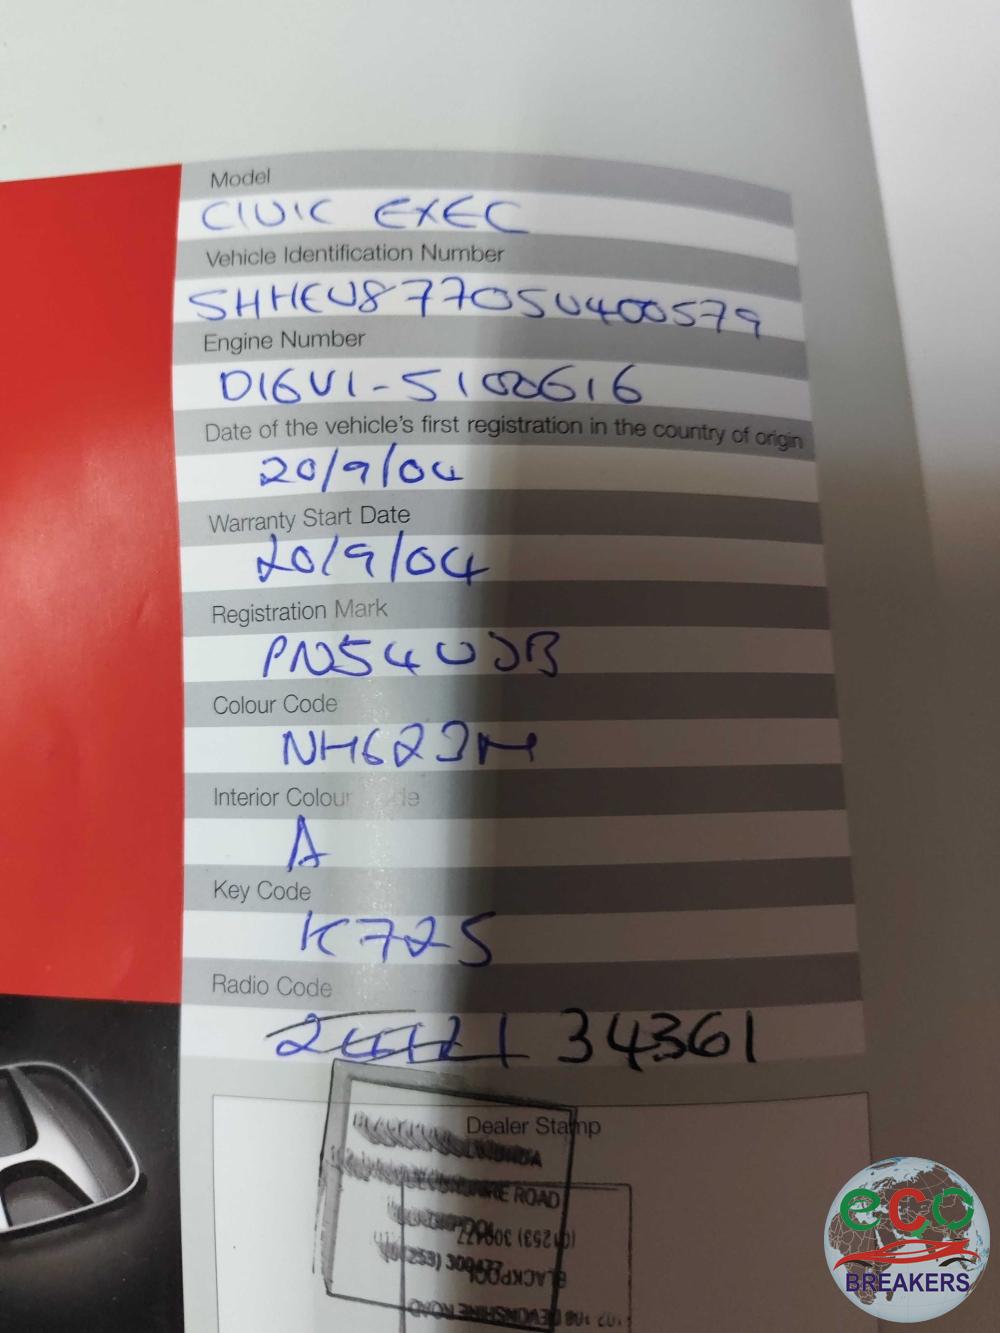 Model
CIVIC EXEC
Vehicle Identification Number
SHHEU87705U400579
Engine Number
D16V1-5100616
Date of the vehicle's first registration in the country of origin
20/9/04
Warranty Start Date
20/9/04
Registration Mark
PN54UJB
Colour Code
NH623M
Interior Colour
A
Key Code
K725
Radio Code
34361
Dealer Stamp
ROAD
BLACKPOOL
eco
BREAKERS